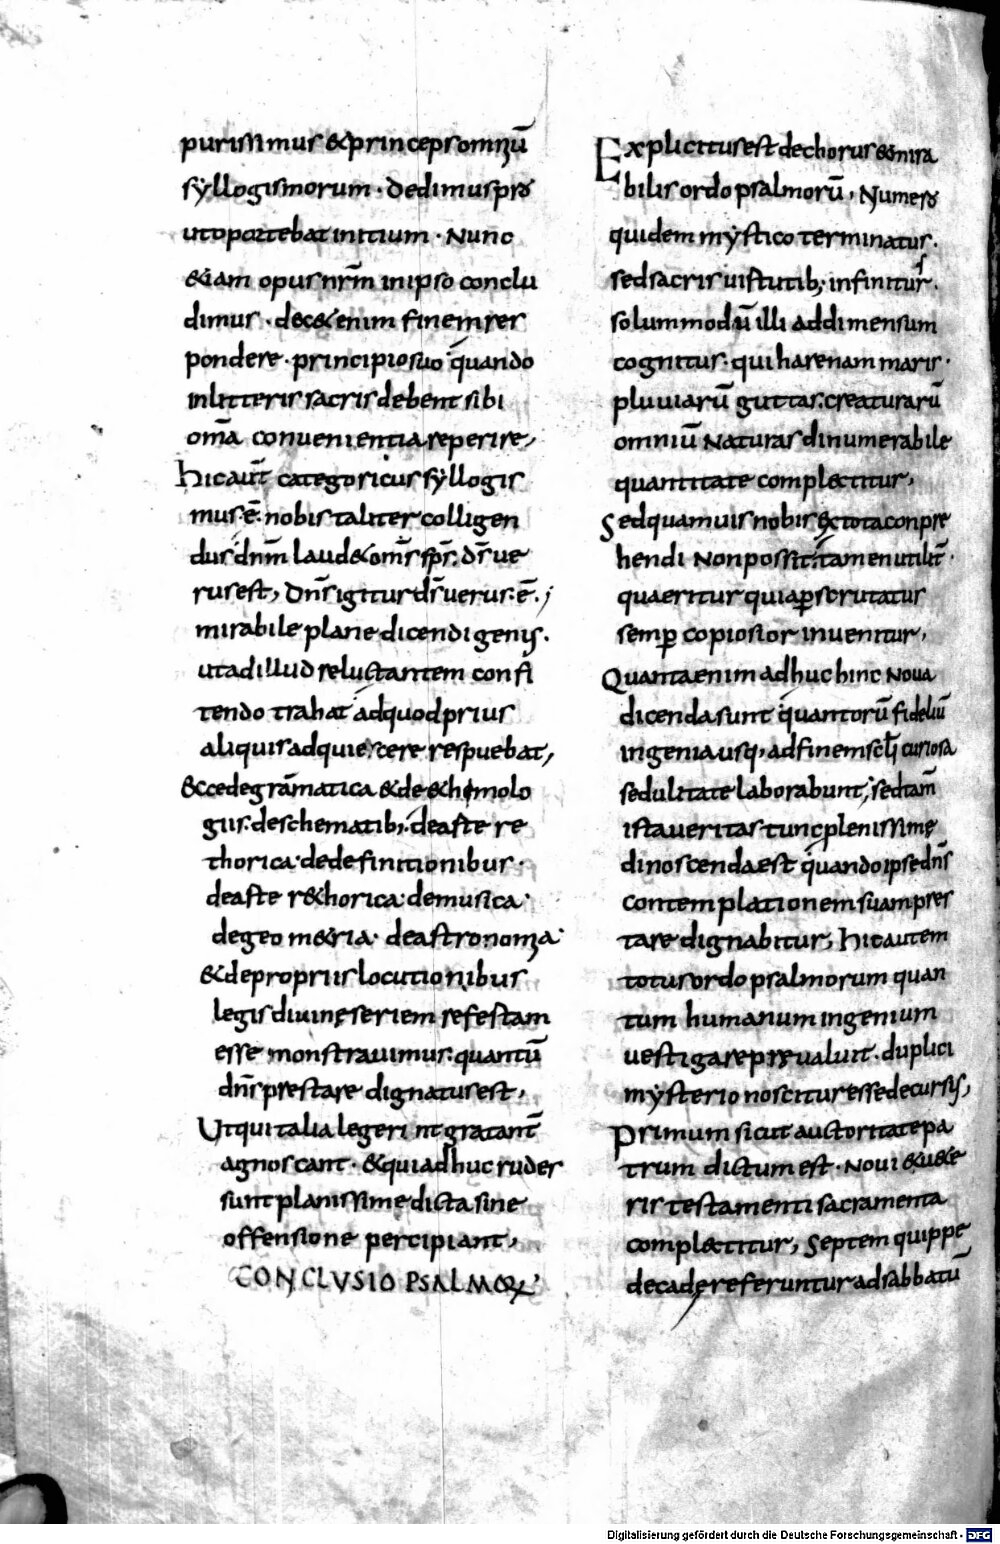 purissimus & princeps omniū
syllogismorum · dedimus pro
ut oportebat initium · Nunc
&iam opus nr̄m in ipso conclu
dimus · dec& enim finem res
pondere · principio suo quando
in litteris sacris debent sibi
om̄a convenientia reperire,
hic aut̄ categoricus syllogis
mus · ē · nobis taliter colligen
dus dn̄m laud& om̄s sp̄s · ds̄ ue
rus est, Dn̄s igitur ds̄ uerus · ē · ;
mirabile plane dicendi genus ·
ut ad illud reluctantem confi
tendo trahat ad quod prius
aliquis adquiescere respuebat,
Ecce de grāmatica & de &himolo
giis · de schematib; · de arte re
thorica · de definitionibus ·
de arte r&horica · de musica ·
de geom&ria · de astronomia ·
& de propriis locutionibus
legis diuinę seriem refertam
esse monstrauimus · quantū
dn̄s prestare dignatus est,
Ut qui talia legerint gratant̄
agnoscant · & qui adhuc rudes
sunt planissime dicta sine
offensione percipiant,
CONCLVSIO PSALMORꝜ
Explicitus est dechorus & mira
bilis ordo psalmorū, Numero
quidem mystico terminatus ·
sed sacris uirtutib; infinitus ·
solummodū illi ad dimensum
cognitus · qui harenam maris ·
pluuiarū guttas · creaturarū
omniū Naturas dinumerabile
quantitate complectitur,
Sed quamuis nobis ex tota conpre
hendi Non possit · tamen utilit̄ ·
quaeritur quia ꝑscrutatus
semꝑ copiosior inuenitur,
Quanta enim adhuc hinc Noua
dicenda sunt quantorū fideliū
ingenia usq; ad finem scl̄i curiosa
sedulitate laborabunt; sed tam̄
ista ueritas tunc plenissime
dinoscenda est quando ipse dn̄s
contemplationem suam pres
tare dignabitur, Hic autem
totus ordo psalmorum quan
tum humanum ingenium
uestigare preualuit · duplici
mysterio noscitur esse decursus,
Primum sicut auctoritate pa
trum dictum est · Noui & u&e
ris testamenti sacramenta
complectitur, Septem quippe
decadę referuntur ad sabbatū
Digitalisierung gefördert durch die Deutsche Forschungsgemeinschaft - DFG